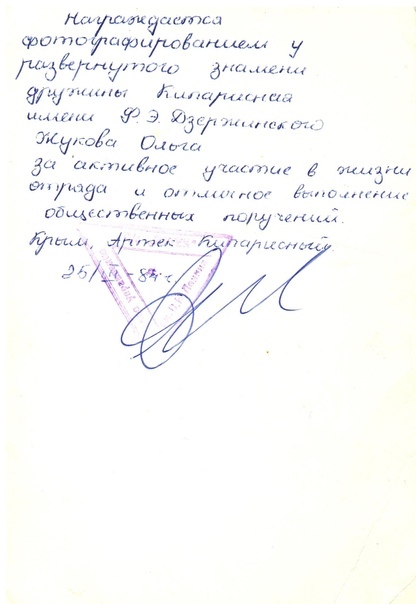 Награждается
фотографированием у
развернутого знамени
дружины Кипарисная
имени Ф.Э.Дзержинского
Жукова Ольга
за активное участие в жизни
отряда и отличное выполнение
общественных поручений.
Крым, Артек Кипарисный